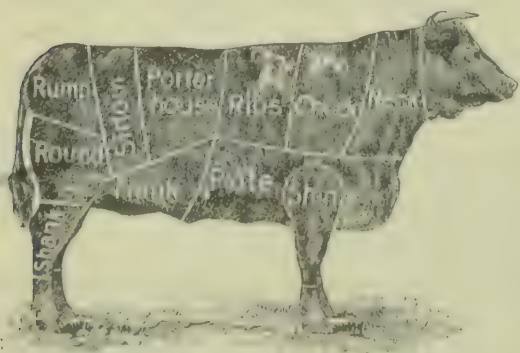 Rump
Sirloin
Porter
house
Ribs
Chuck
Neck
Round
Flank
Plate
Shin
Shank